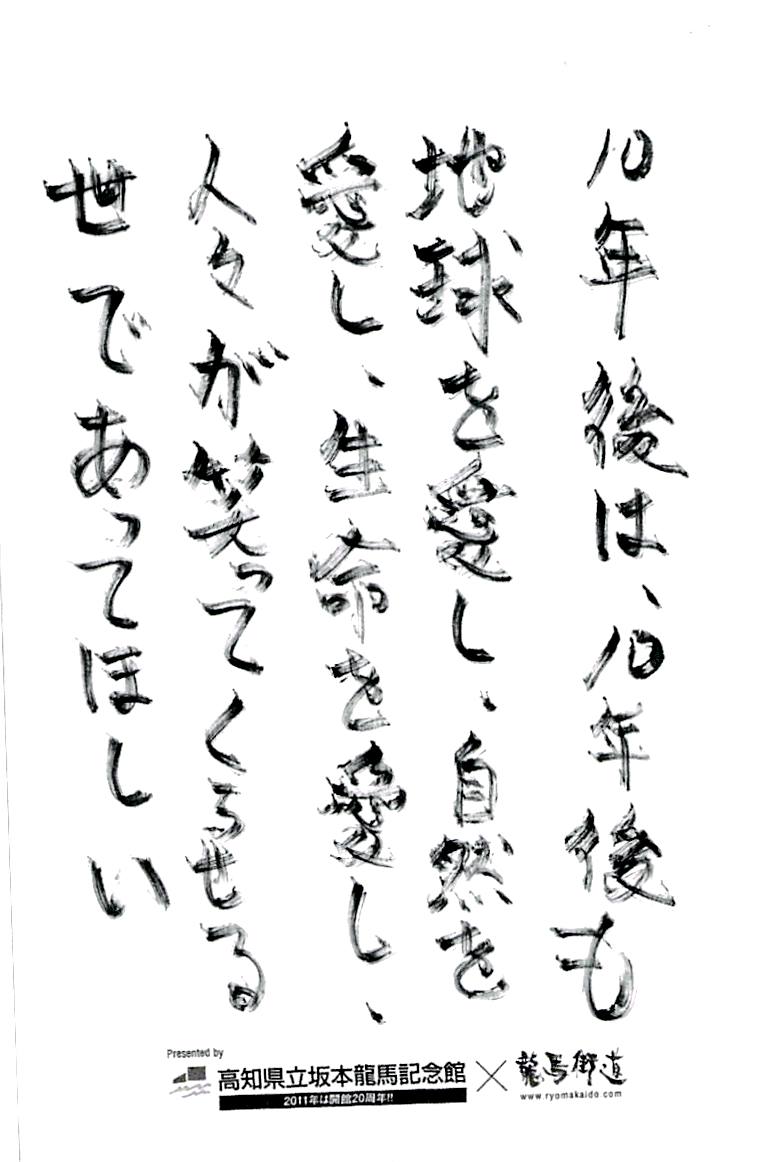 10年後は、10年後も
地球を愛し、自然を
愛し、生命を愛し、
人々が笑ってくらせる
世であってほしい
Presented by
高知県立坂本龍馬記念館 × 龍馬街道
2011年は開館20周年!!
www.ryomakaido.com